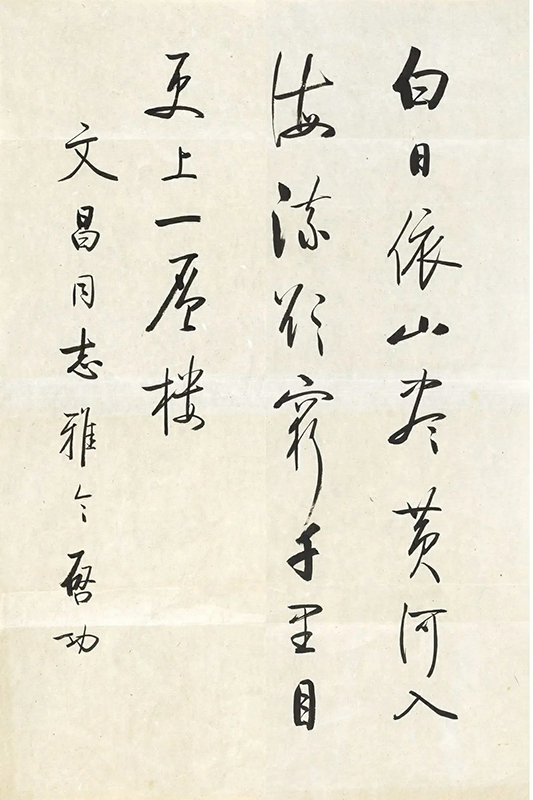 白日依山尽黄河入
海流欲窮千里目
更上一層楼
文昌同志雅令 啓功